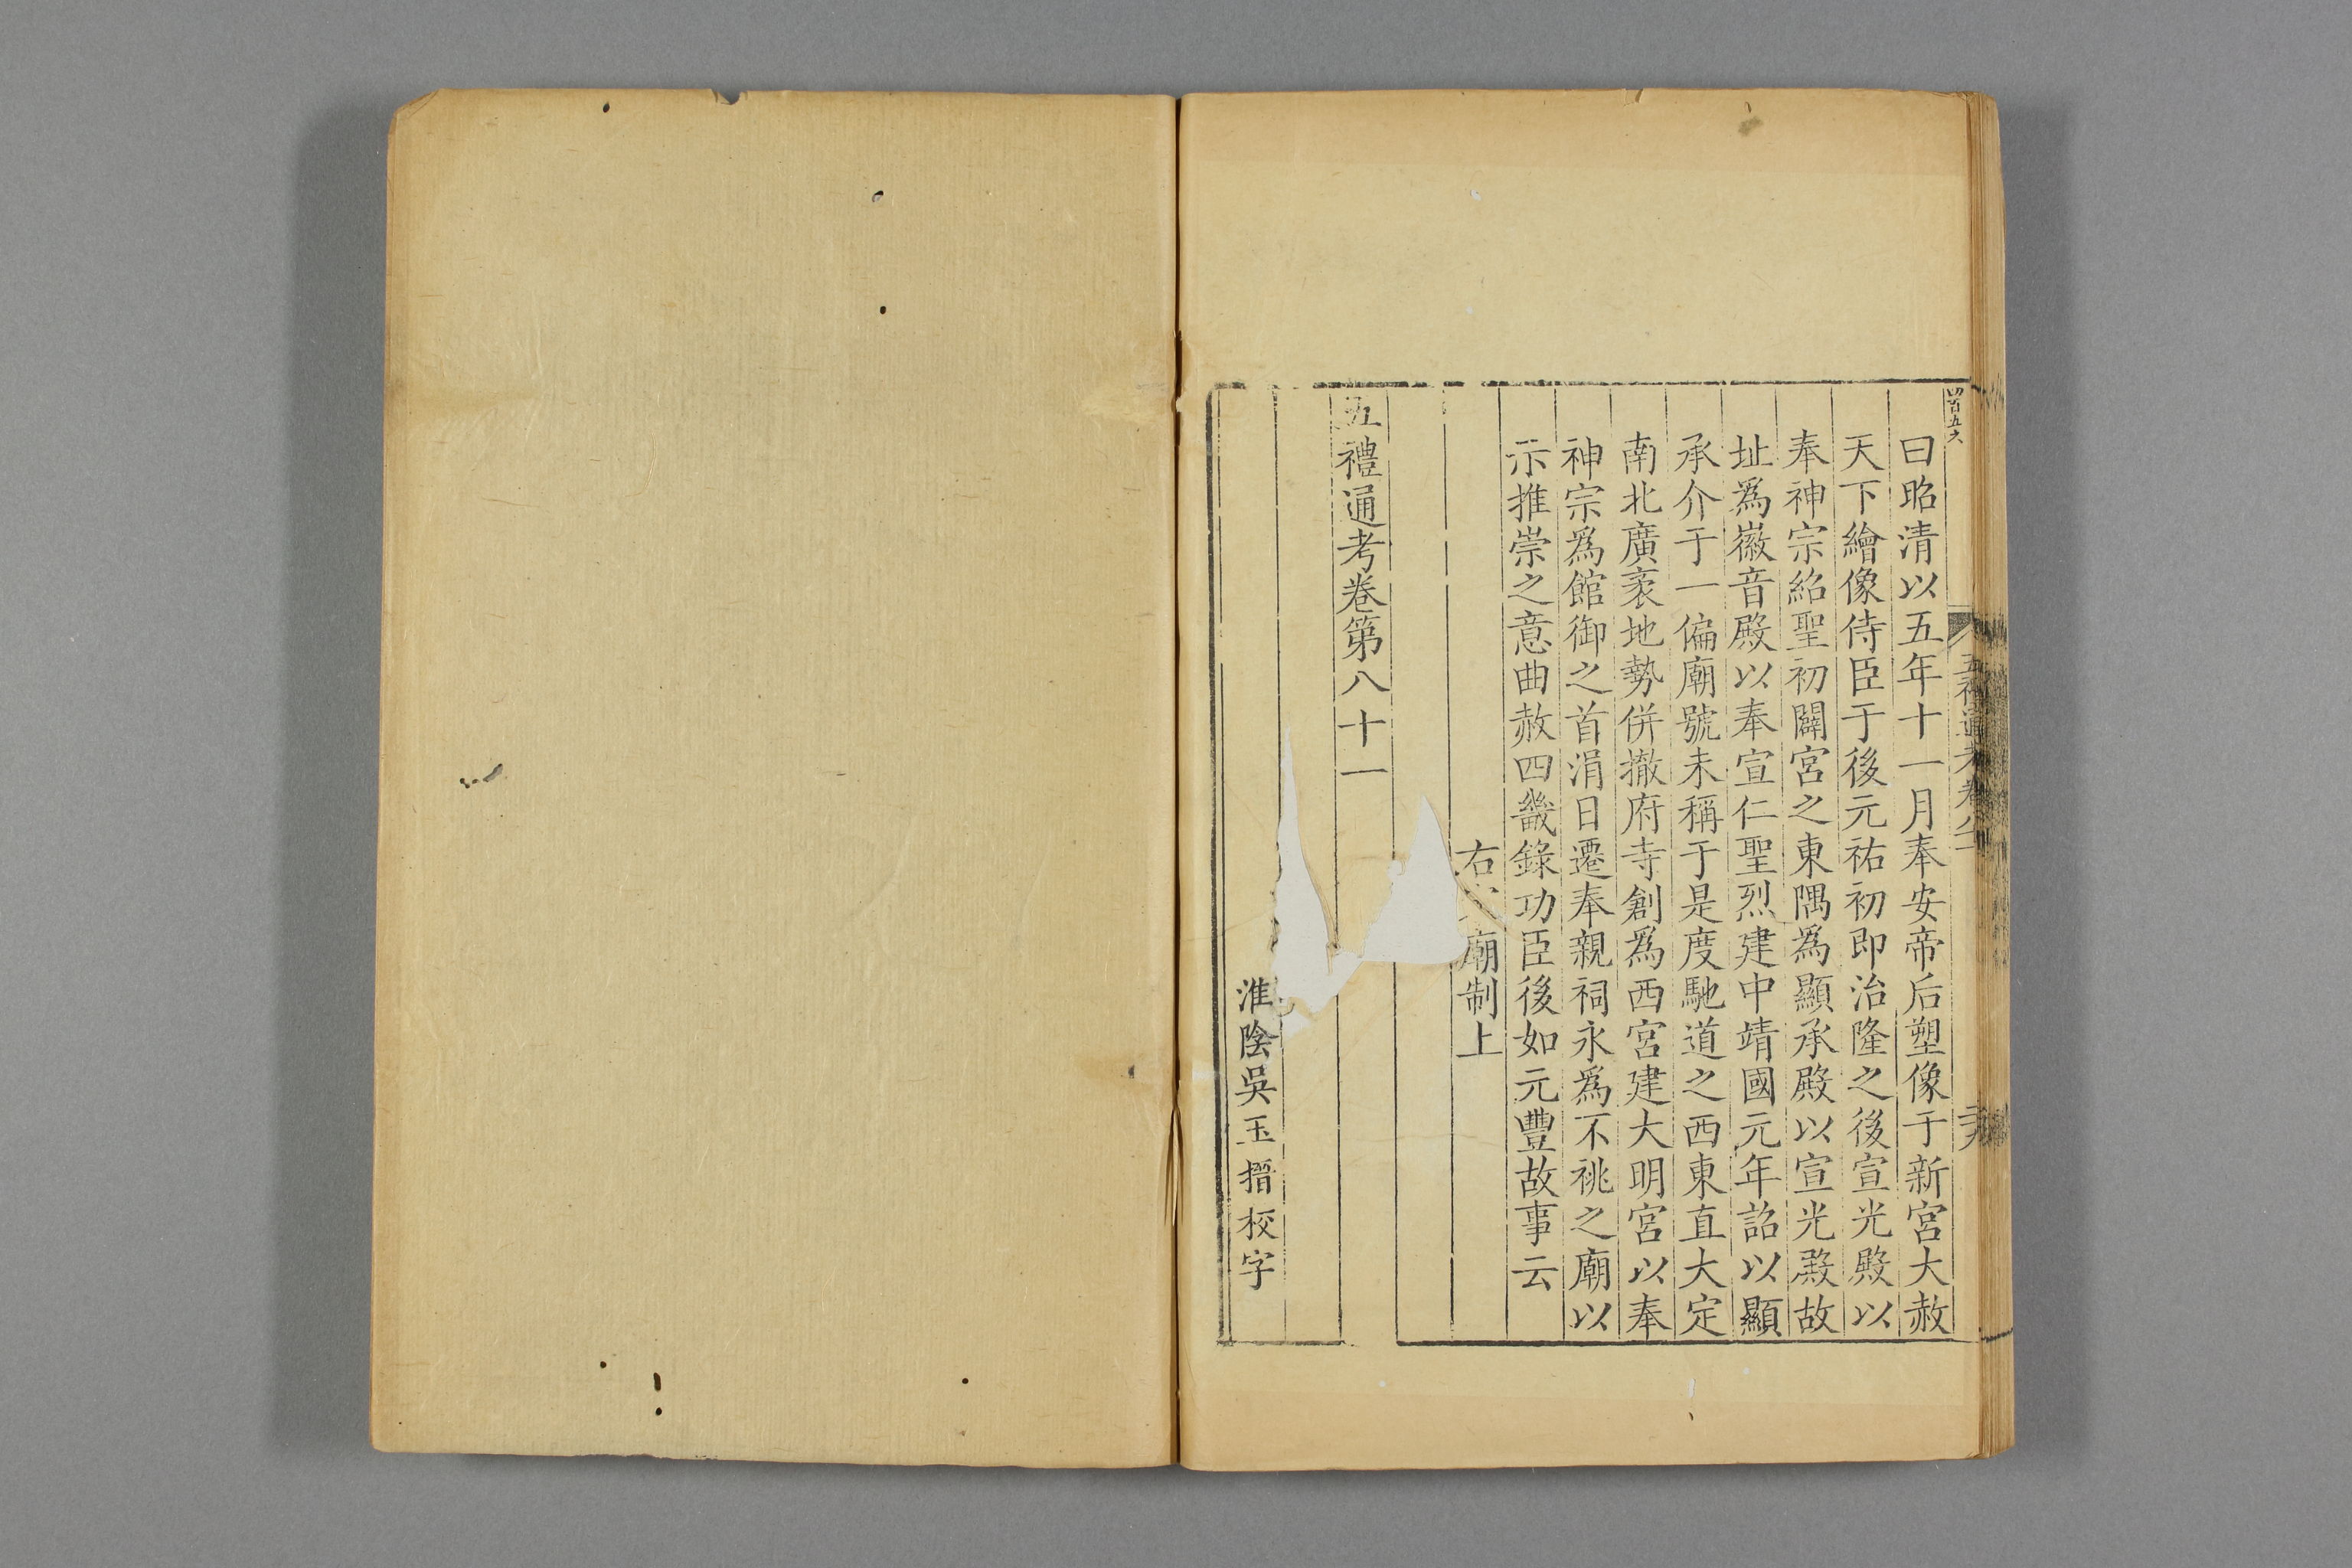 四百五六
五禮通考卷八十一
曰昭清以五年十一月奉安帝后塑像于新宮大赦
天下繪像侍臣于後元祐初即治隆之後宣光殿以
奉神宗紹聖初闢宮之東隅為顯承殿以宣光殿故
址為徽音殿以奉宣仁聖烈建中靖國元年詔以顯
承介于一偏廟號未稱于是度馳道之西東直大定
南北廣袤地勢併撤府寺創為西宮建大明宮以奉
神宗為館御之首涓日遷奉親祠永為不祧之廟以
示推崇之意曲赦四畿錄功臣後如元豐故事云
右 廟制上
五禮通考卷第八十一
淮陰吳玉搢校字